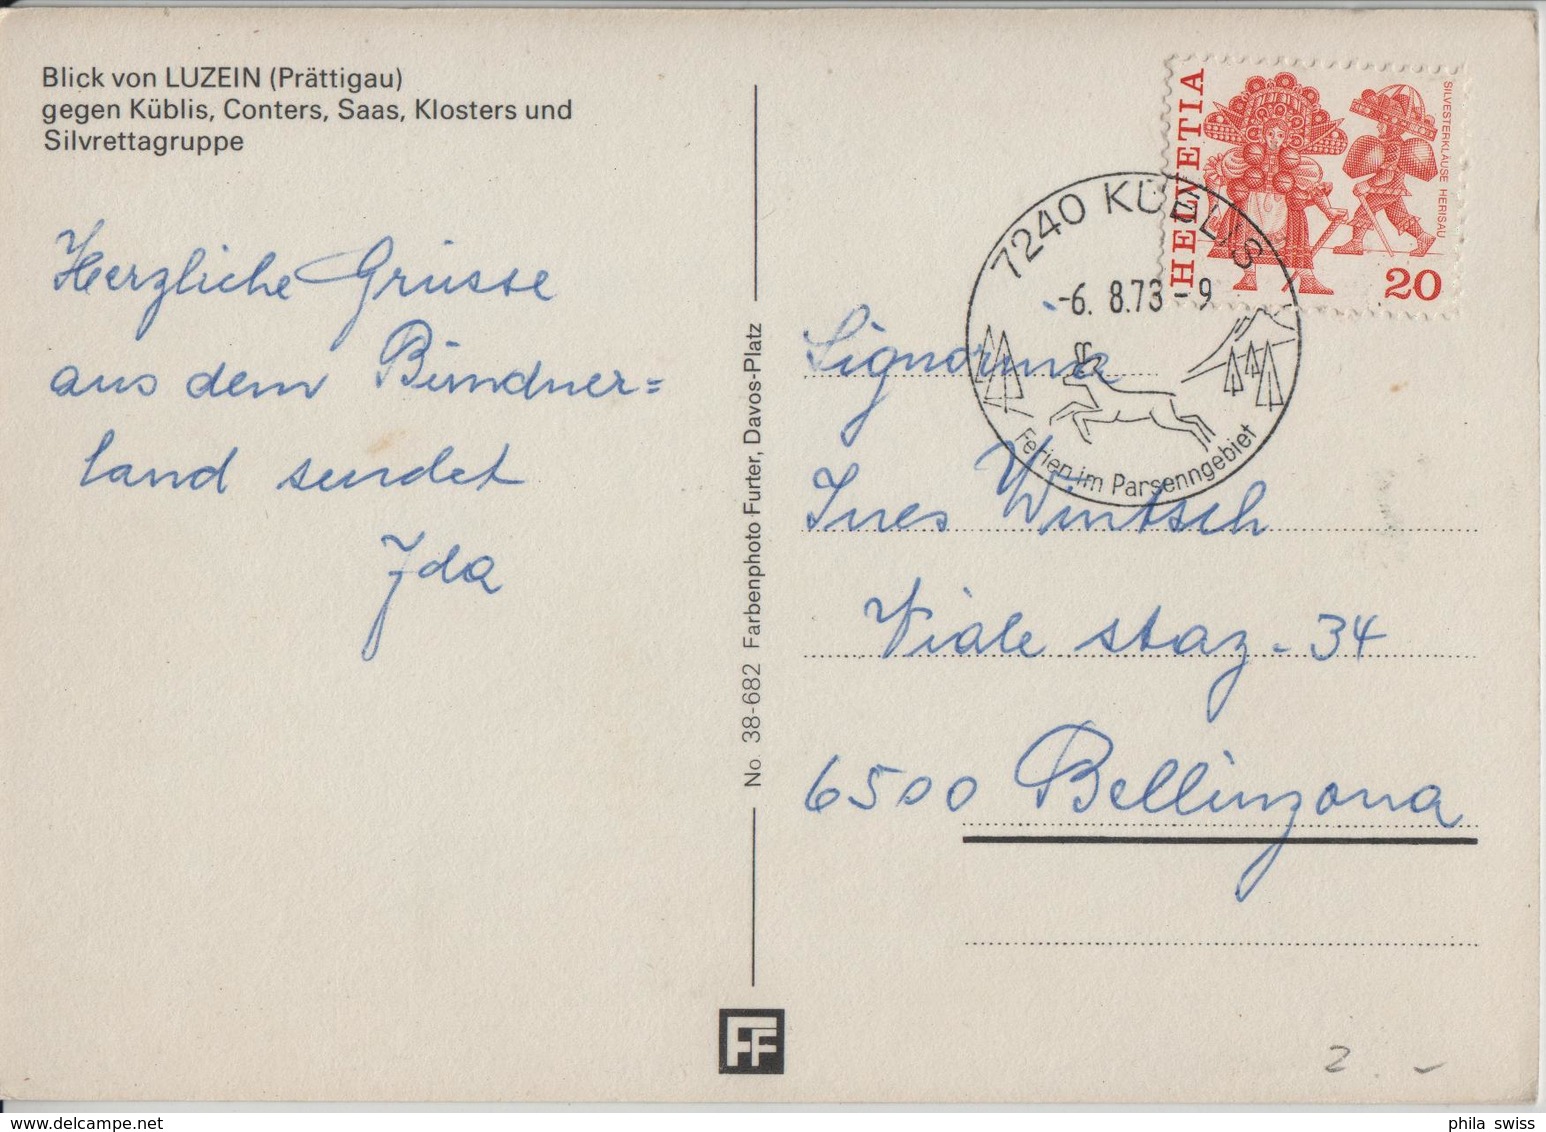 Blick von LUZEIN (Prättigau)
gegen Küblis, Conters, Saas, Klosters und
Silvrettagruppe
Herzliche Grüsse
aus dem Bündner=
land sendet
Ida
No. 38-682 Farbenphoto Furter, Davos-Platz
FF
HELVETIA
SILVESTERKLÄUSE HERISAU
20
7240 KÜBLIS
-6. 8.73-9
Ferien im Parsenngebiet
Signorina
Ines Wintsch
Viale staz. 34
6500 Bellinzona
2.-
phila swiss